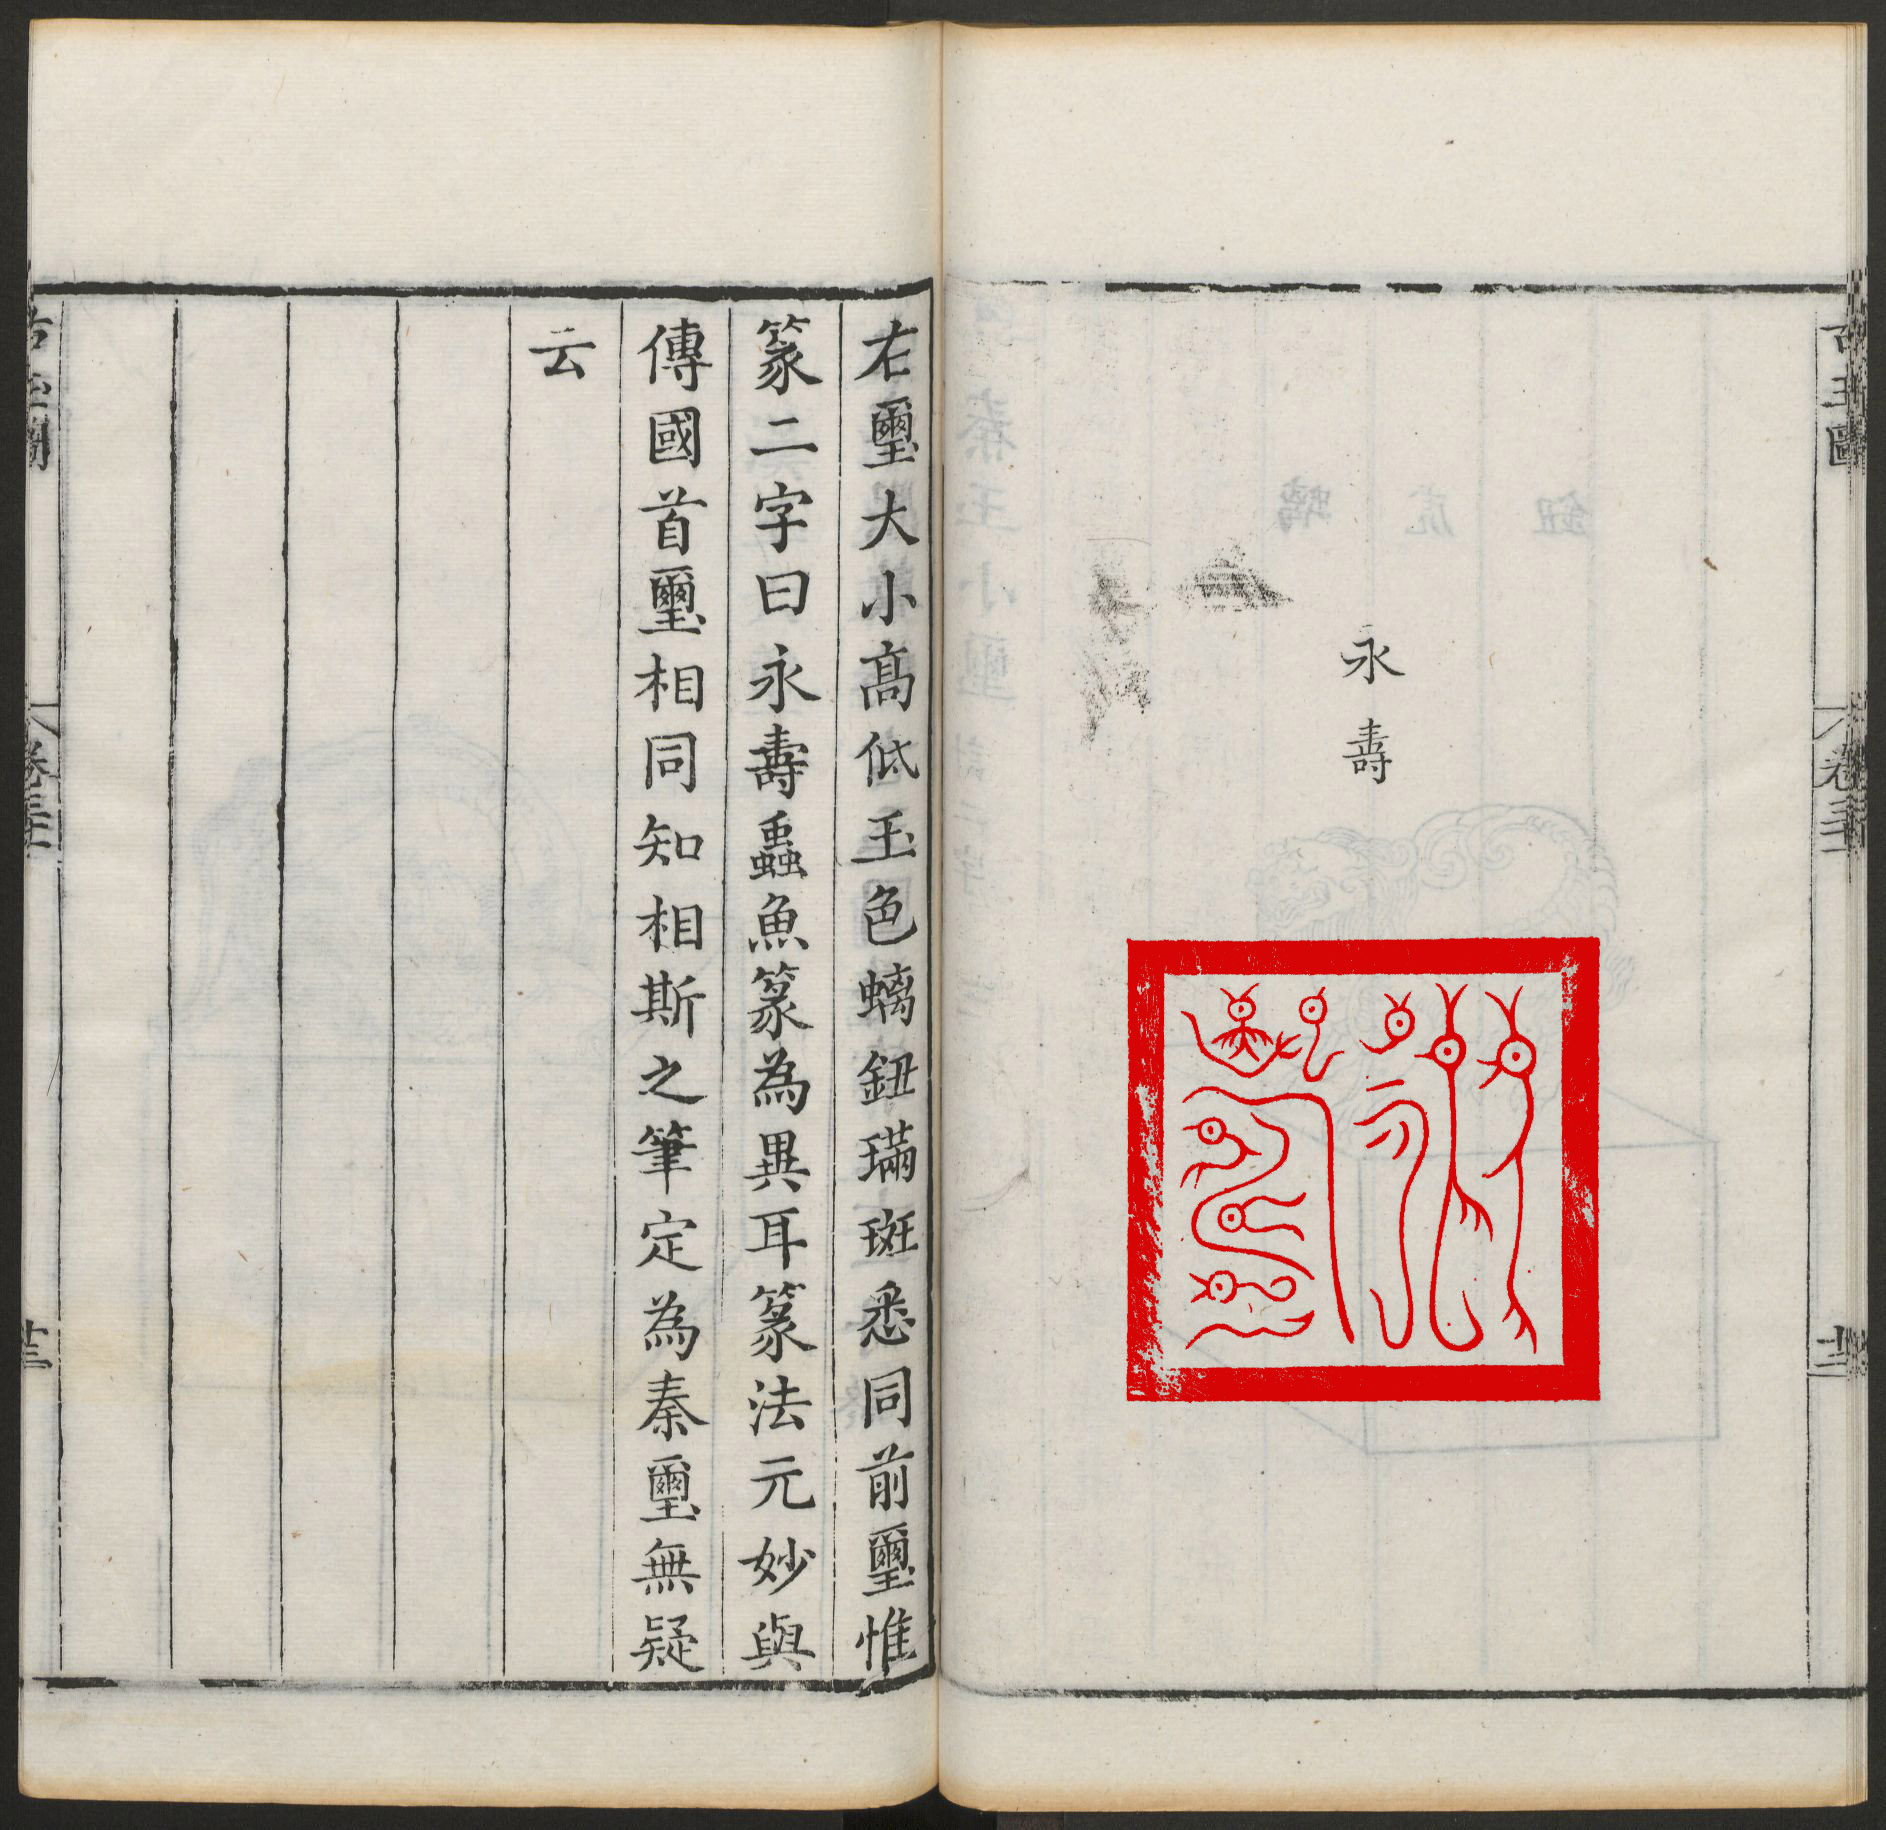 古玉圖
卷三
永壽
右璽大小高低玉色螭鈕璊斑悉同前璽惟
篆二字曰永壽蟲魚篆為異耳篆法元妙與
傳國首璽相同知相斯之筆定為秦璽無疑
云